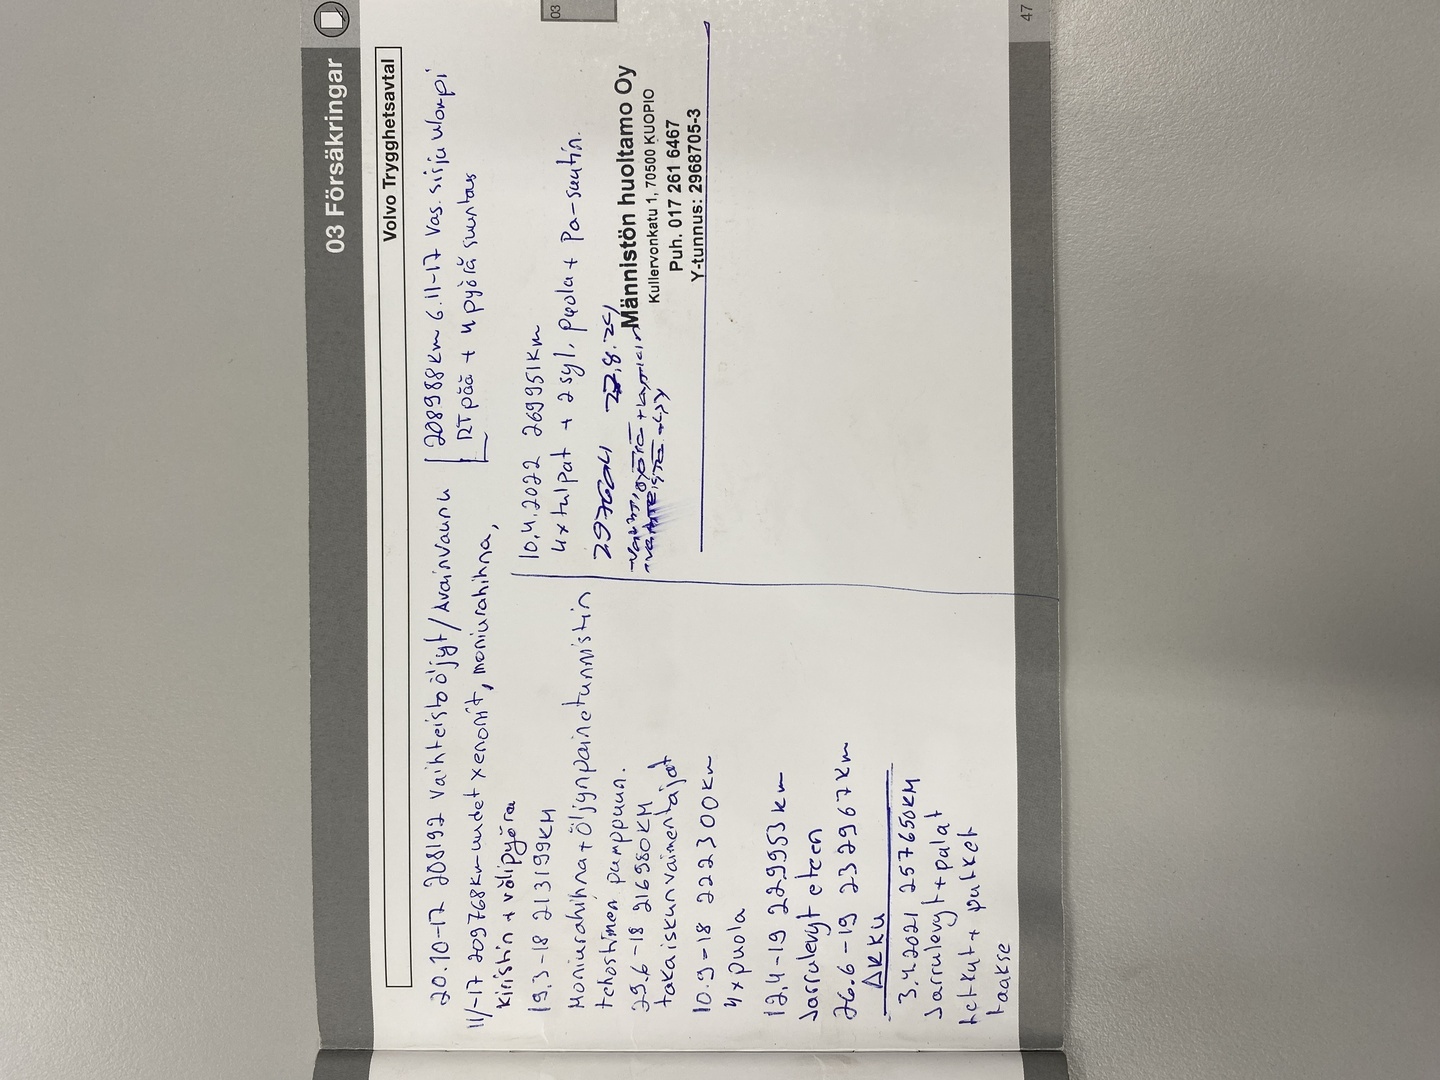 03 Försäkringar
Volvo Trygghetsavtal
20.10-17 208192 Vaihteistoöljyt/Avainvaunu
11/-17 209768km uudet xenonit, moniurahihna,
kiristin + välipyörä
19.3-18 213199KM
Moniurahihna + öljynpainetunnistin
tehostimen pumppuun.
29.6-18 216980KM
takaiskunvaimentajat
10.9-18 222300km
4xpuola
12.4-19 229953km
Jarrulevyt eteen
26.6-19 232967km
AKKU
3.4.2021 257650KM
Jarrulevyt + palat
letkut + putket
taakse
208988km 6.11-17 Vas. sisju ulompi
RTpää + 4pyörä suuntaus
10.4.2022 269951km
4xtulpat + 2 syl. puola + Pa-suutin.
Männistön huoltamo Oy
Kullervonkatu 1, 70500 KUOPIO
Puh. 017 261 6467
Y-tunnus: 2968705-3
03
47